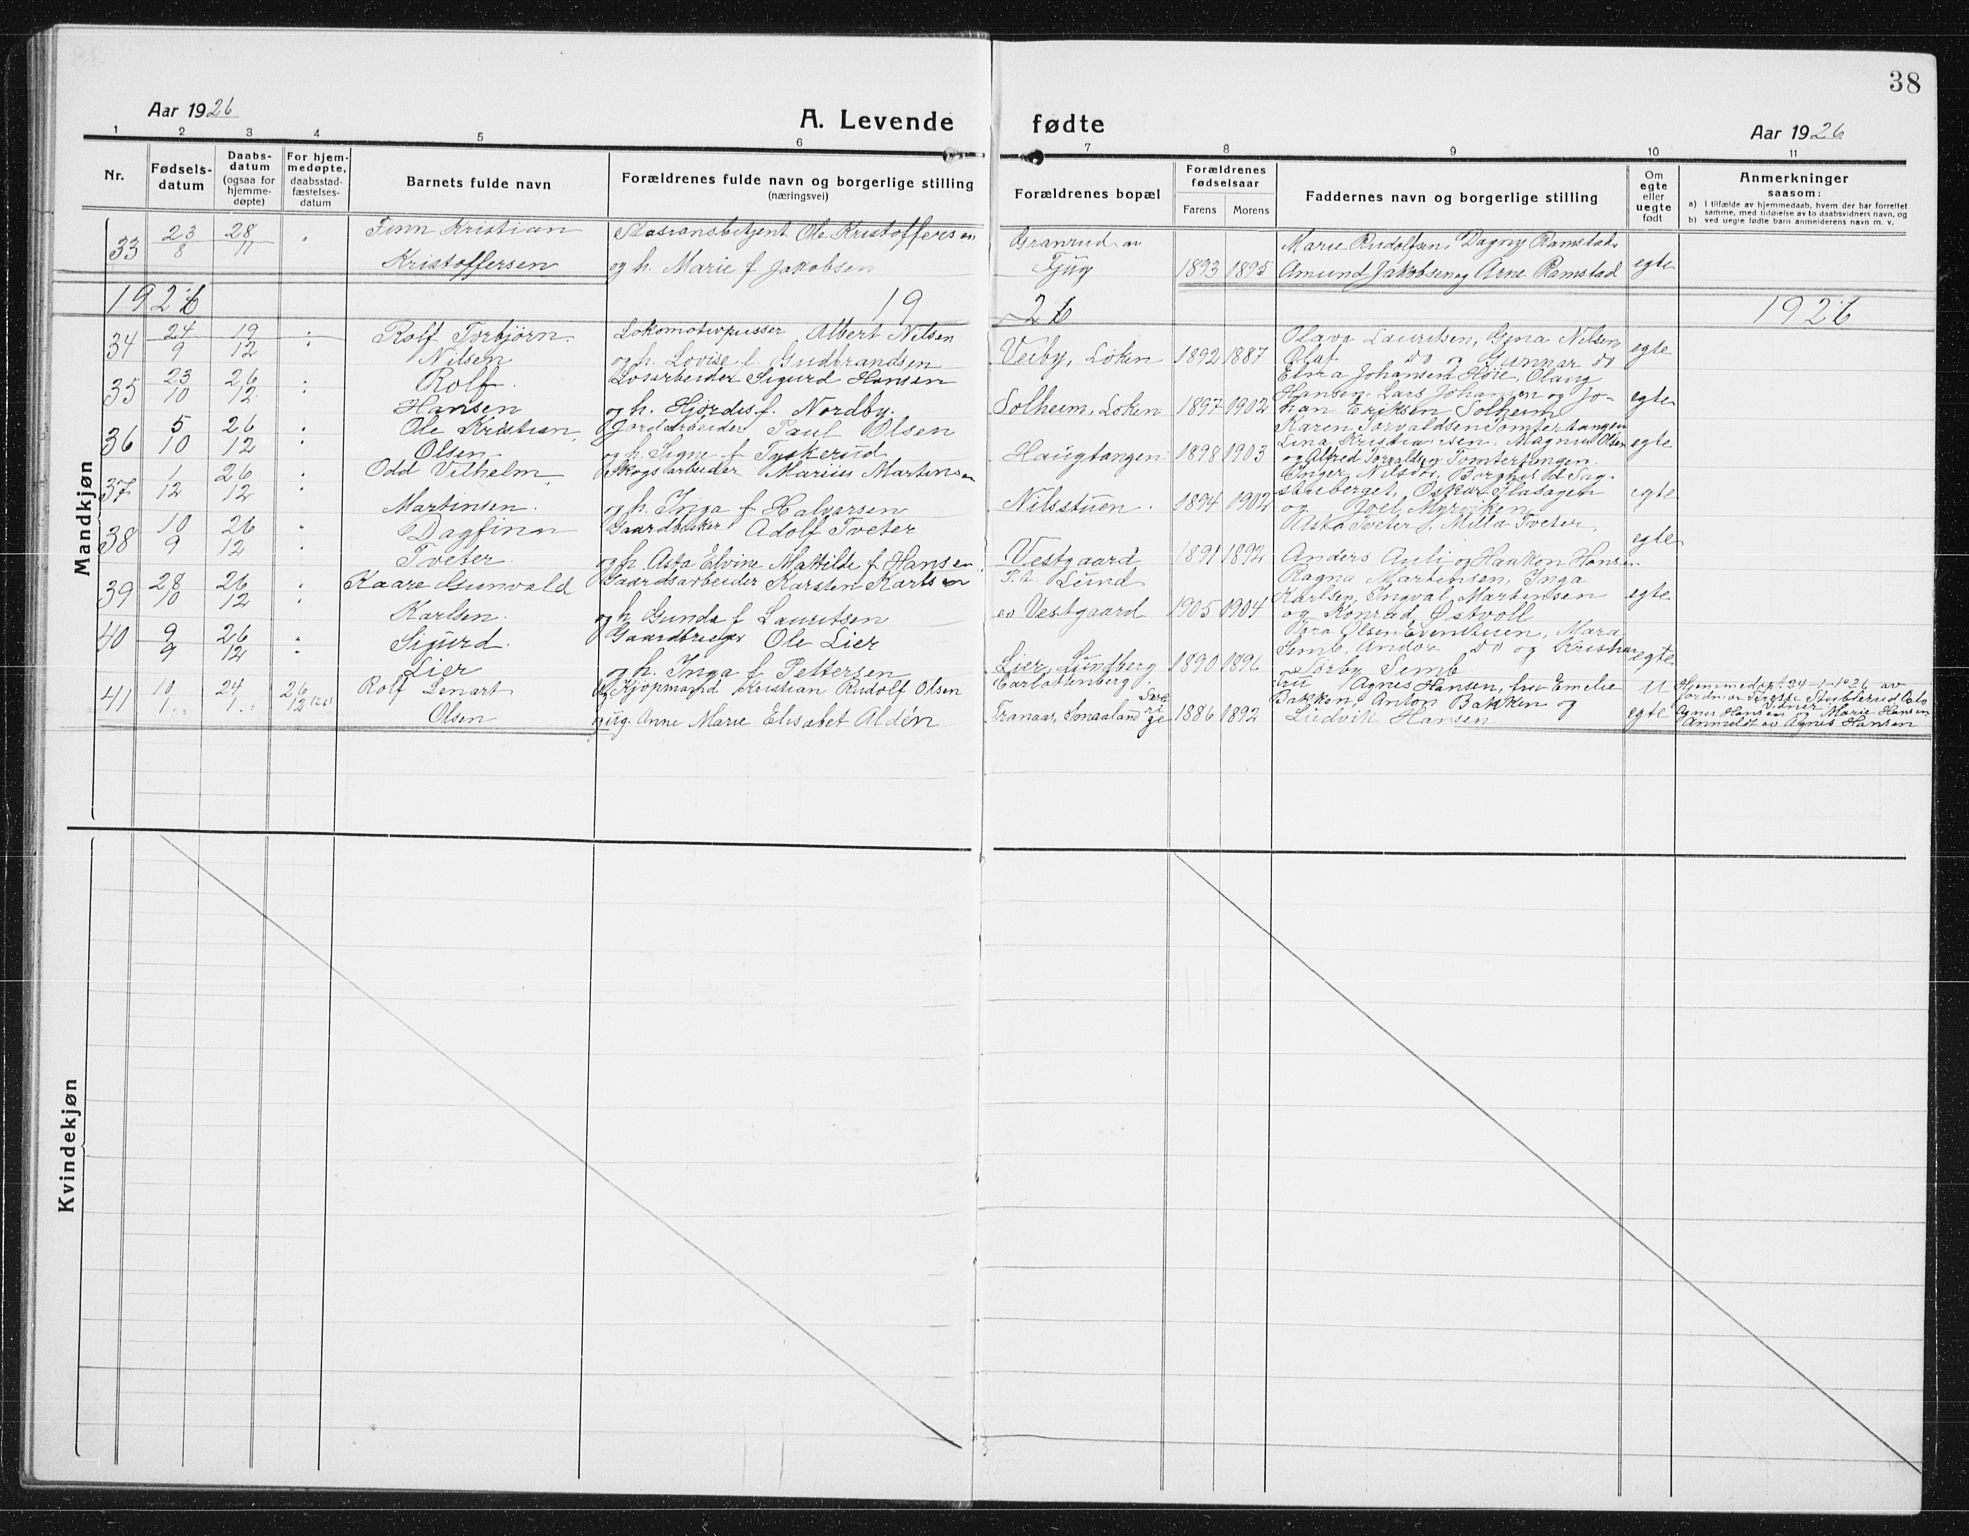 38
Aar 1926
A. Levende fødte
Aar 1926
1 2 3 4 5 6 7 8 9 10 11
Nr.
Fødsels-
datum
Daabs-
datum
(ogsaa for
hjemme-
døpte)
For hjem-
medøpte,
daabsstad-
fæstelses-
datum
Barnets fulde navn
Forældrenes fulde navn og borgerlige stilling
(næringsvei)
Forældrenes bopæl
Forældrenes
fødselsaar
Farens Morens
Faddernes navn og borgerlige stilling
Om
egte
eller
uegte
født
Anmerkninger
saasom:
a) I tilfælde av hjemmedaab, hvem der har forrettet
samme, med tilføielse av to daabsvidners navn, og
b) ved uegte fødte barn anmelderens navn m. v.
Mandkjøn
33 23/8 28/11 Finn Kristian Stasionsbetjent Ole Kristoffersen Granrud av Marie Rudolfsen, Dagny Ramstad,
Kristoffersen og h. Marie f Jakobsen Tjug 1893 1895 Amund Jakobsen og Arne Ramstad egte
1926 19 26 1926
34 24/9 19/12 Rolf Torbjørn Lokomotivpusser Albert Nilsen Olava Lauritsen, Gina Nilsen
Nilsen og h. Lovise f. Gudbrandsen Veiby, Løken 1892 1887 Olaf do og Gunnar do egte
35 23/10 26/12 Rolf Løsarbeider Sigurd Hansen Elvra Johansen Høie, Olaug
Hansen og h. Hjørdis f. Nordby. Solheim, Løken 1897 1902 Hansen, Lars Johansen og Jo-
han Eriksen Solheim egte
36 5/10 26/12 Ole Kristian Jordarbeider Paul Olsen Karen Torvaldsen Tomtertangen
Olsen og h. Signe f Tyskerud Haugtangen 1898 1903 Lina Kristiansen, Magnus Olsen
og Alfred Torvaldsen Tomtertangen. egte
37 1/12 26/12 Odd Vilhelm Skogsarbeider Marius Martinsen Inger Nilsdør, Borghild Sag-
Martinsen. og h. Inga f Halvorsen Nilsstuen. 1894 1902 stuberget, Oskar Flasagen
og Joel Myrviken egte
38 10/9 26/12 Dagfinn Gaardbruker Adolf Tveter Asta Tveter, Milla Tveter,
Tveter og h Asta Elvine Mathilde f Hansen Vestgaard 1891 1892 Anders Auli og Haakon Hansen egte
39 28/10 26/12 Kaare Gunvald Gaardsarbeider Karsten Karlsen P.t. Lund Ragna Martinsen, Inga
Karlsen. og h Gunda f Lauritsen av Vestgaard 1905 1904 Karlsen, Ingval Martinsen
og Konrad Østvoll egte
40 9/9 26/12 Sigurd Gaardbruger Ole Lier Olsen Evenstuen, Mara
Lier og h. Inga f Pettersen Lier, Lundberg 1890 1896 Semb, Andor do og Kristian
Sørby Semb egte
41 10/1 24/1 26/12 (26) Rolf Lenart Kjøpmand Kristian Rudolf Olsen Carlottenberg, Fru Agnes Hansen, fru Emelie u
Olsen og ug. Anne Marie Elisabet Aldén Tranaas, Smaaland Sverige 1886 1892 Bakken, Anton Bakken og
Ludvik Hansen egte
Hjemmedøpt 24-1-1926 av
Jordmor
Agnes Hansen og Marie Hansen
Anmeldt av Agnes Hansen
Kvindekjøn